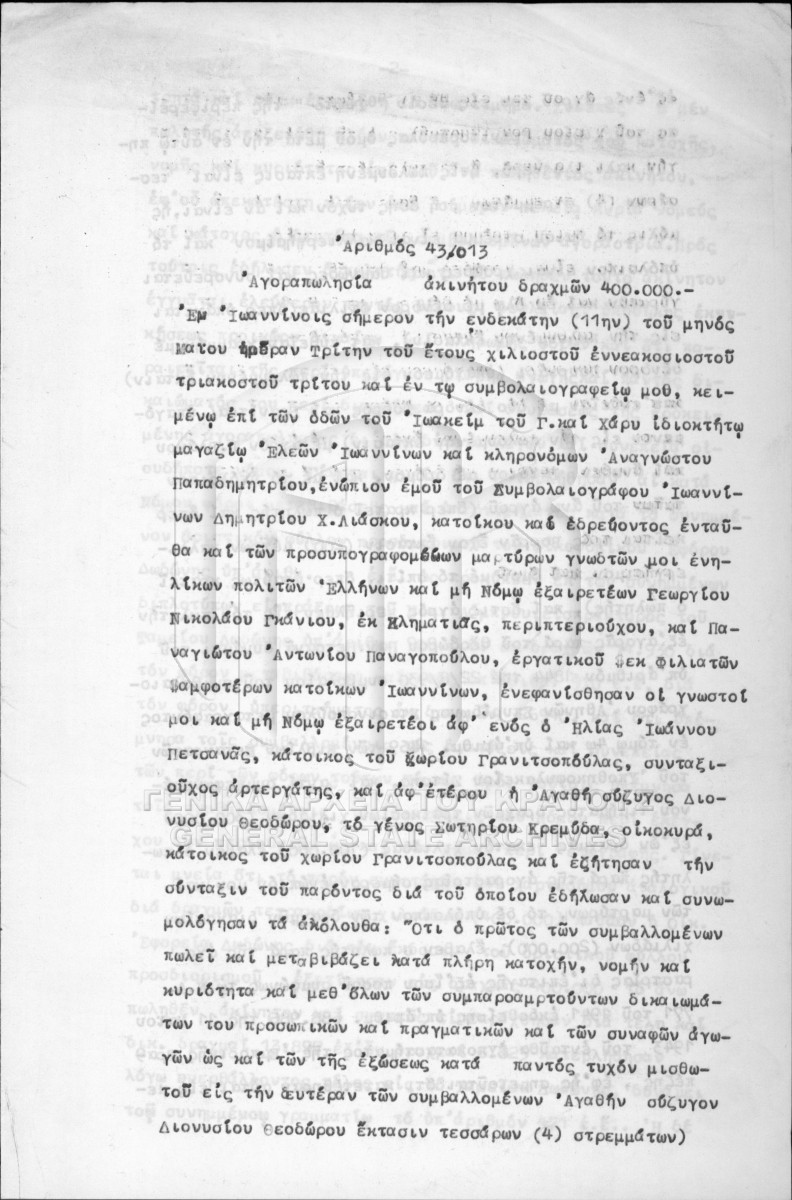 Ἀριθμός 43.013
Ἀγοραπωλησία ἀκινήτου δραχμῶν 400.000.-
Ἐν Ἰωαννίνοις σήμερον τήν ἐνδεκάτην (11ην) τοῦ μηνός
Ματου Τρίτην τοῦ ἔτους χιλιοστοῦ ἐννεακοσιοστοῦ
τριακοστοῦ τρίτου καί ἐν τῳ συμβολαιογραφείῳ μοθ, κει-
μένῳ ἐπί τῶν ὁδῶν τοῦ Ἰωακείμ τοῦ Γ.καί Χάρυ ἰδιοκτήτῳ
μαγαζίῳ Ἐλεῶν Ἰωαννίνων καί κληρονόμων Ἀναγνώστου
Παπαδημητρίου,ἐνώπιον ἐμοῦ τοῦ Συμβολαιογράφου Ἰωαννί-
νων Δημητρίου Χ.Λιάσκου, κατοίκου καί ἑδρεύοντος ἐνταῦ-
θα καί τῶν προσυπογραφομένων μαρτύρων γνωστῶν μοι ἐνη-
λίκων πολιτῶν Ἑλλήνων καί μή Νόμῳ ἐξαιρετέων Γεωργίου
Νικολάου Γκάνιου, ἐκ Κληματιᾶς, περιπτεριούχου, καί Πα-
ναγιώτου Ἀντωνίου Παναγοπούλου, ἐργατικοῦ ἐκ Φιλιατῶν
ἀμφοτέρων κατοίκων Ἰωαννίνων, ἐνεφανίσθησαν οἱ γνωστοί
μοι καί μή Νόμῳ ἐξαιρετέοι ἀφ' ἑνός ὁ Ἠλίας Ἰωάννου
Πετσανᾶς, κάτοικος τοῦ χωρίου Γρανιτσοπούλας, συνταξι-
οῦχος ἀρτεργάτης, καί ἀφ'ἑτέρου ἡ Ἀγαθή σύζυγος Διο-
νυσίου Θεοδώρου, τό γένος Σωτηρίου Κρεμύδα, οἰκοκυρά,
κάτοικος τοῦ χωρίου Γρανιτσοπούλας καί ἐζήτησαν τήν
σύνταξιν τοῦ παρόντος διά τοῦ ὁποίου ἐδήλωσαν καί συνω-
μολόγησαν τά ἀκόλουθα: Ὅτι ὁ πρῶτος τῶν συμβαλλομένων
πωλεῖ καί μεταβιβάζει κατά πλήρη κατοχήν, νομήν καί
κυριότητα καί μεθ'ὅλων τῶν συμπαροαμρτούντων δικαιωμά-
των του προσωπικῶν καί πραγματικῶν καί τῶν συναφῶν ἀγω-
γῶν ὡς καί τῶν τῆς ἐξώσεως κατά παντός τυχόν μισθω-
τοῦ εἰς τήν δευτέραν τῶν συμβαλλομένων Ἀγαθήν σύζυγον
Διονυσίου Θεοδώρου ἔκτασιν τεσσάρων (4) στρεμμάτων)
ΓΕΝΙΚΑ ΑΡΧΕΙΑ ΤΟΥ ΚΡΑΤΟΥΣ
GENERAL STATE ARCHIVES